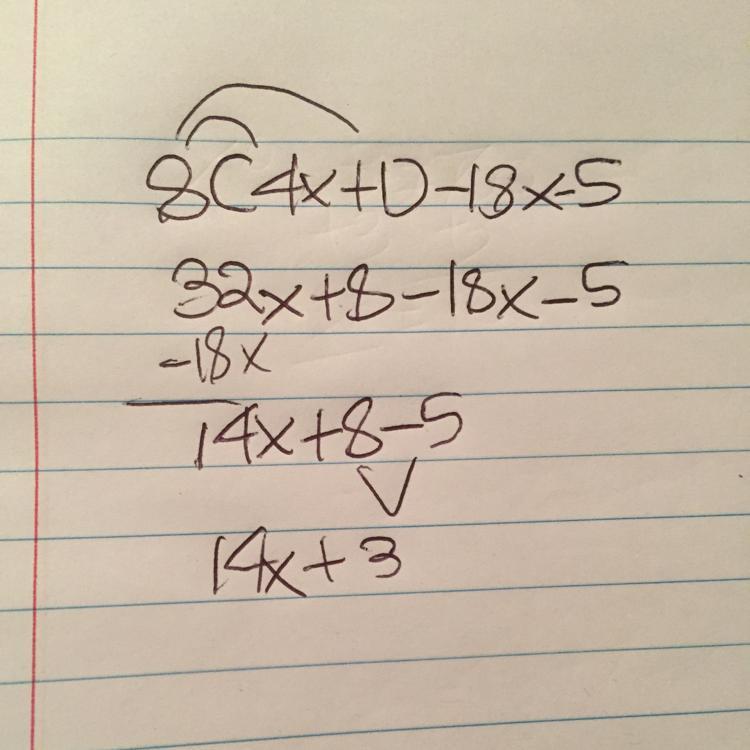 8(4x+1)-18x-5
32x+8-18x-5
-18x
14x+8-5
14x+3